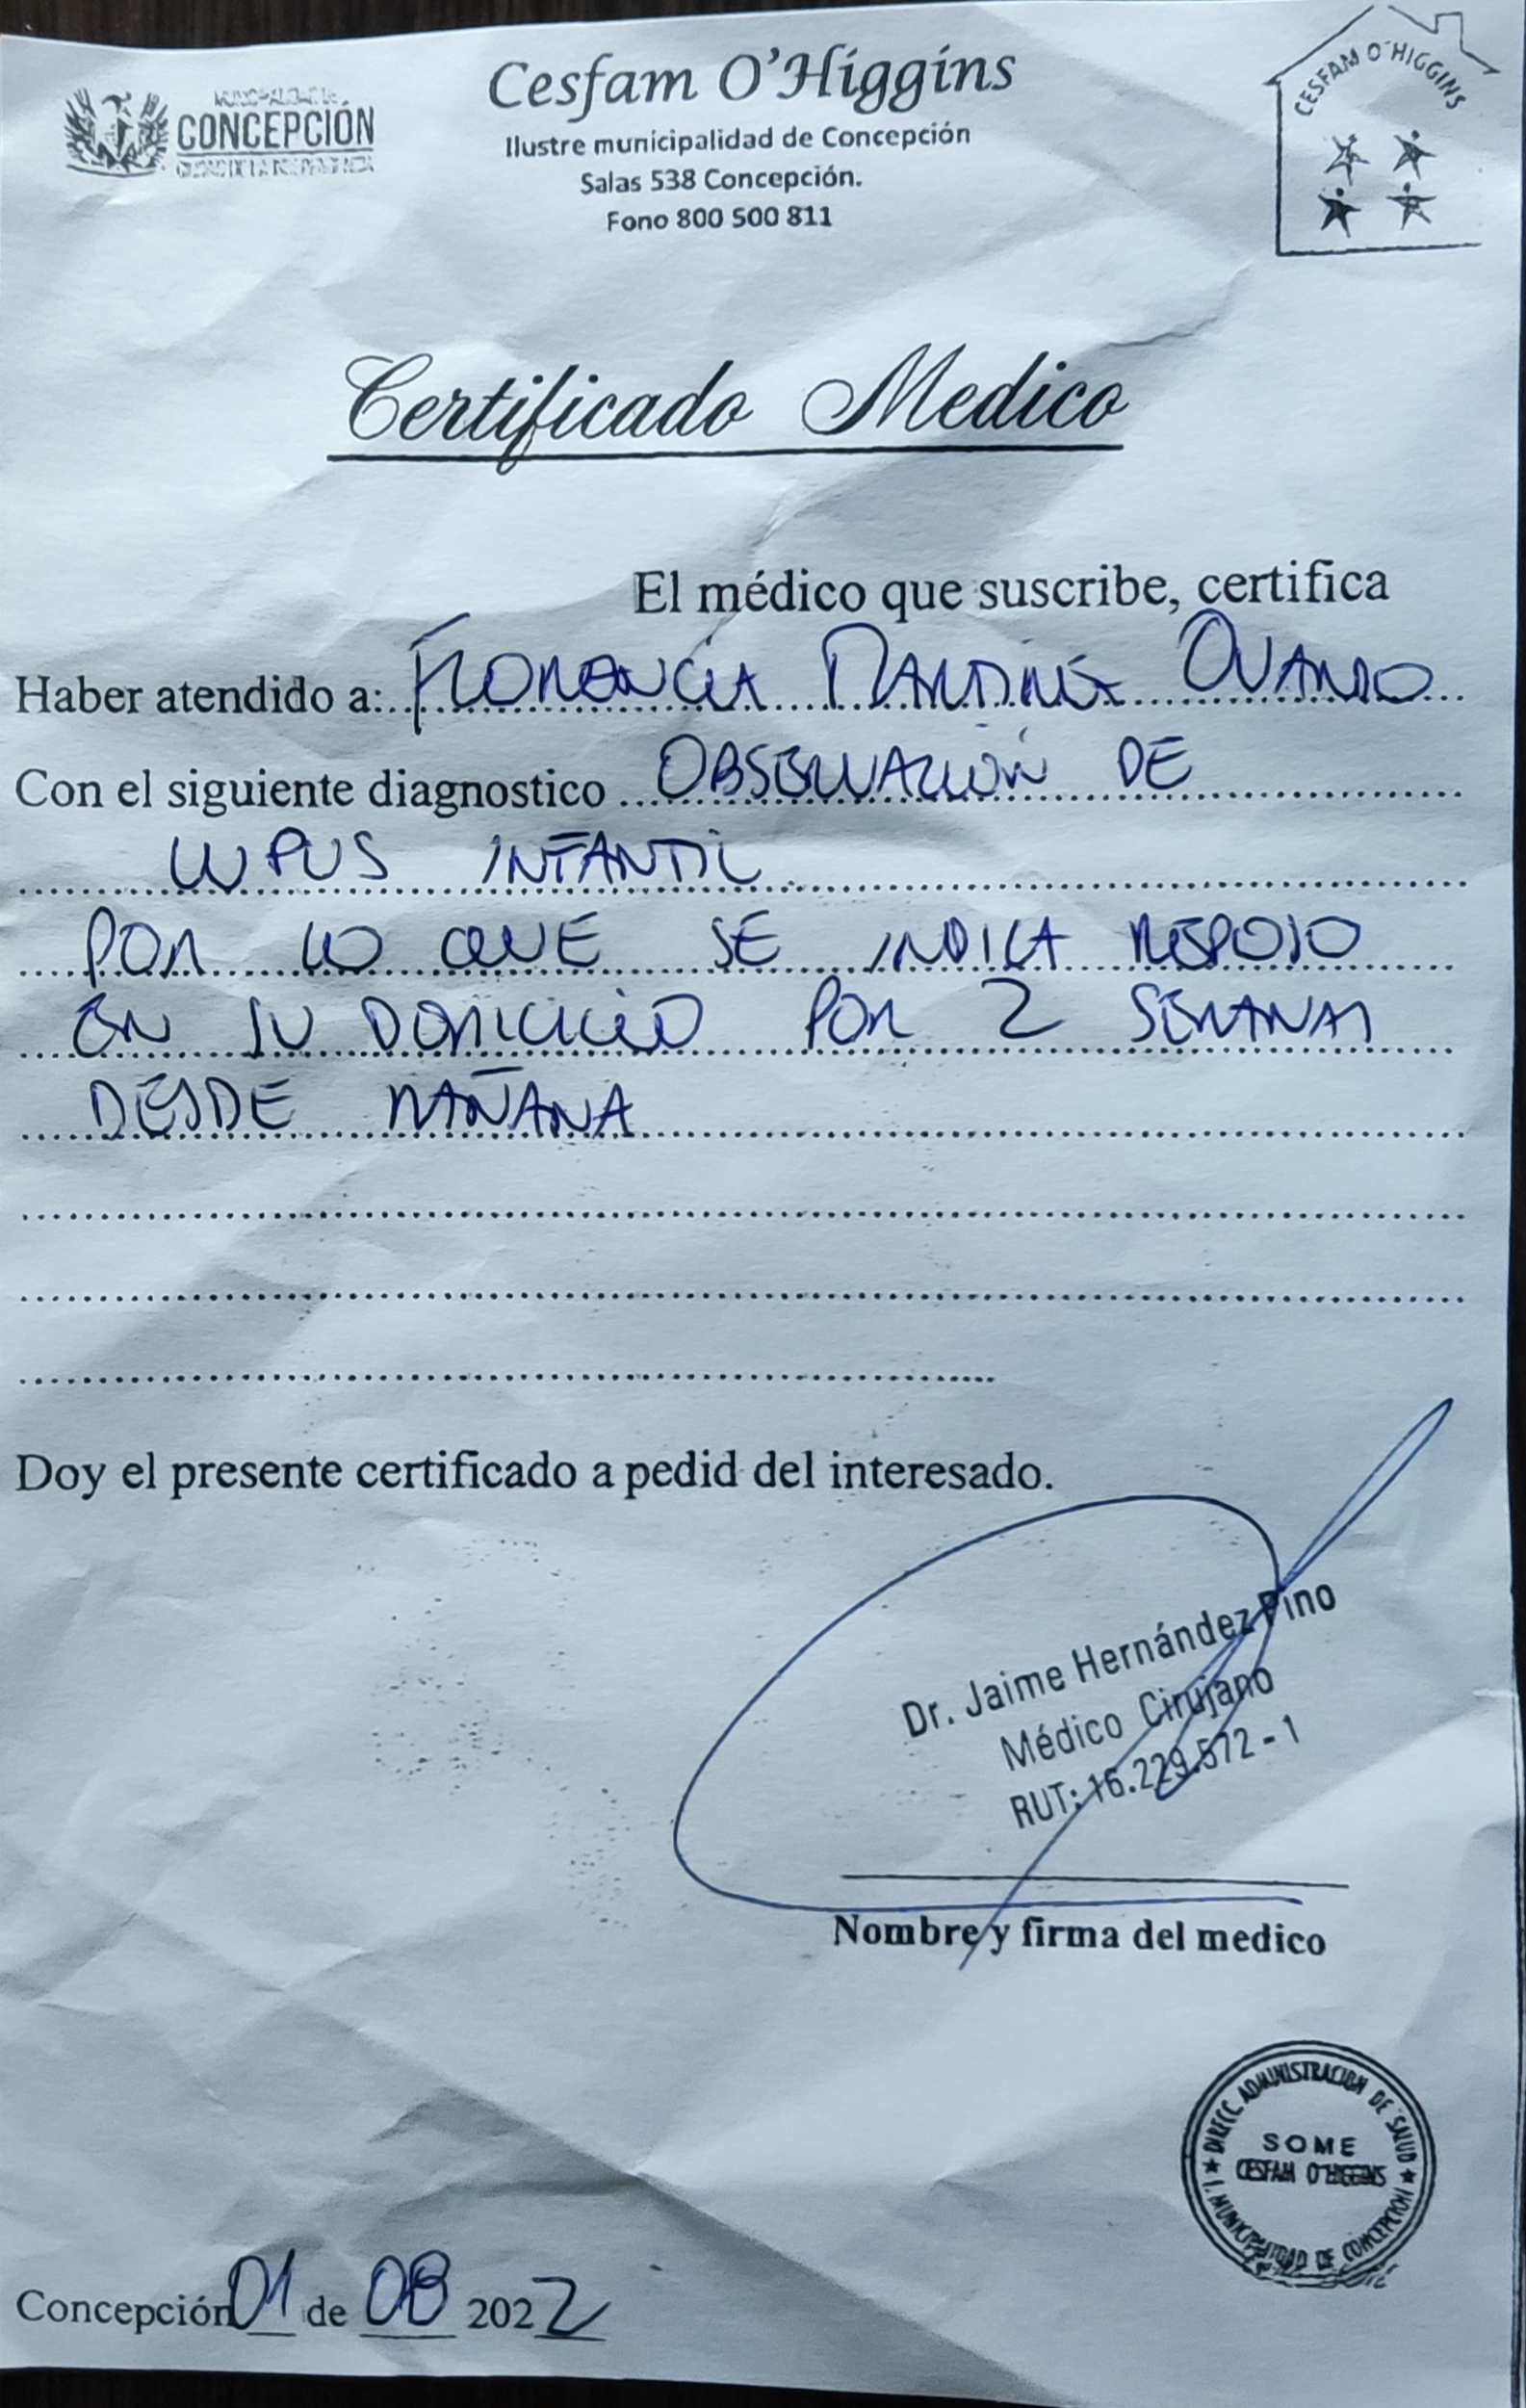 CONCEPCIÓN
Cesfam O'Higgins
Ilustre municipalidad de Concepción
Salas 538 Concepción.
Fono 800 500 811
CESFAM O'HIGGINS
Certificado Medico
El médico que suscribe, certifica
Haber atendido a: FLORENCIA MARTINEZ OVANDO
Con el siguiente diagnostico OBSERVACIÓN DE
LUPUS INFANTIL
POR LO QUE SE INDICA REPOSO
EN SU DOMICILIO POR 2 SEMANAS
DESDE MAÑANA
Doy el presente certificado a pedid del interesado.
Dr. Jaime Hernández Pino
Médico Cirujano
RUT: 16.229.572-1
Nombre y firma del medico
DIRECC. ADMINISTRACION DE SALUD
SOME
CESFAM O'HIGGINS
I. MUNICIPALIDAD DE CONCEPCION
Concepción 01 de 08 2022